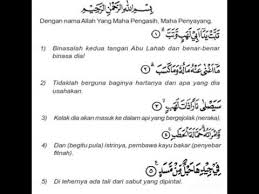 بِسْمِ اللهِ الرَّحْمٰنِ الرَّحِيْمِ
Dengan nama Allah Yang Maha Pengasih, Maha Penyayang.
تَبَّتْ يَدَآ اَبِيْ لَهَبٍ وَّتَبَّۗ ١
1) Binasalah kedua tangan Abu Lahab dan benar-benar
binasa dia!
مَآ اَغْنٰى عَنْهُ مَالُهٗ وَمَا كَسَبَۗ ٢
2) Tidaklah berguna baginya hartanya dan apa yang dia
usahakan.
سَيَصْلٰى نَارًا ذَاتَ لَهَبٍۙ ٣
3) Kelak dia akan masuk ke dalam api yang bergejolak (neraka).
وَّامْرَاَتُهٗۗ حَمَّالَةَ الْحَطَبِۚ ٤
4) Dan (begitu pula) istrinya, pembawa kayu bakar (penyebar
fitnah).
فِيْ جِيْدِهَا حَبْلٌ مِّنْ مَّسَدٍ ٥
5) Di lehernya ada tali dari sabut yang dipintal.